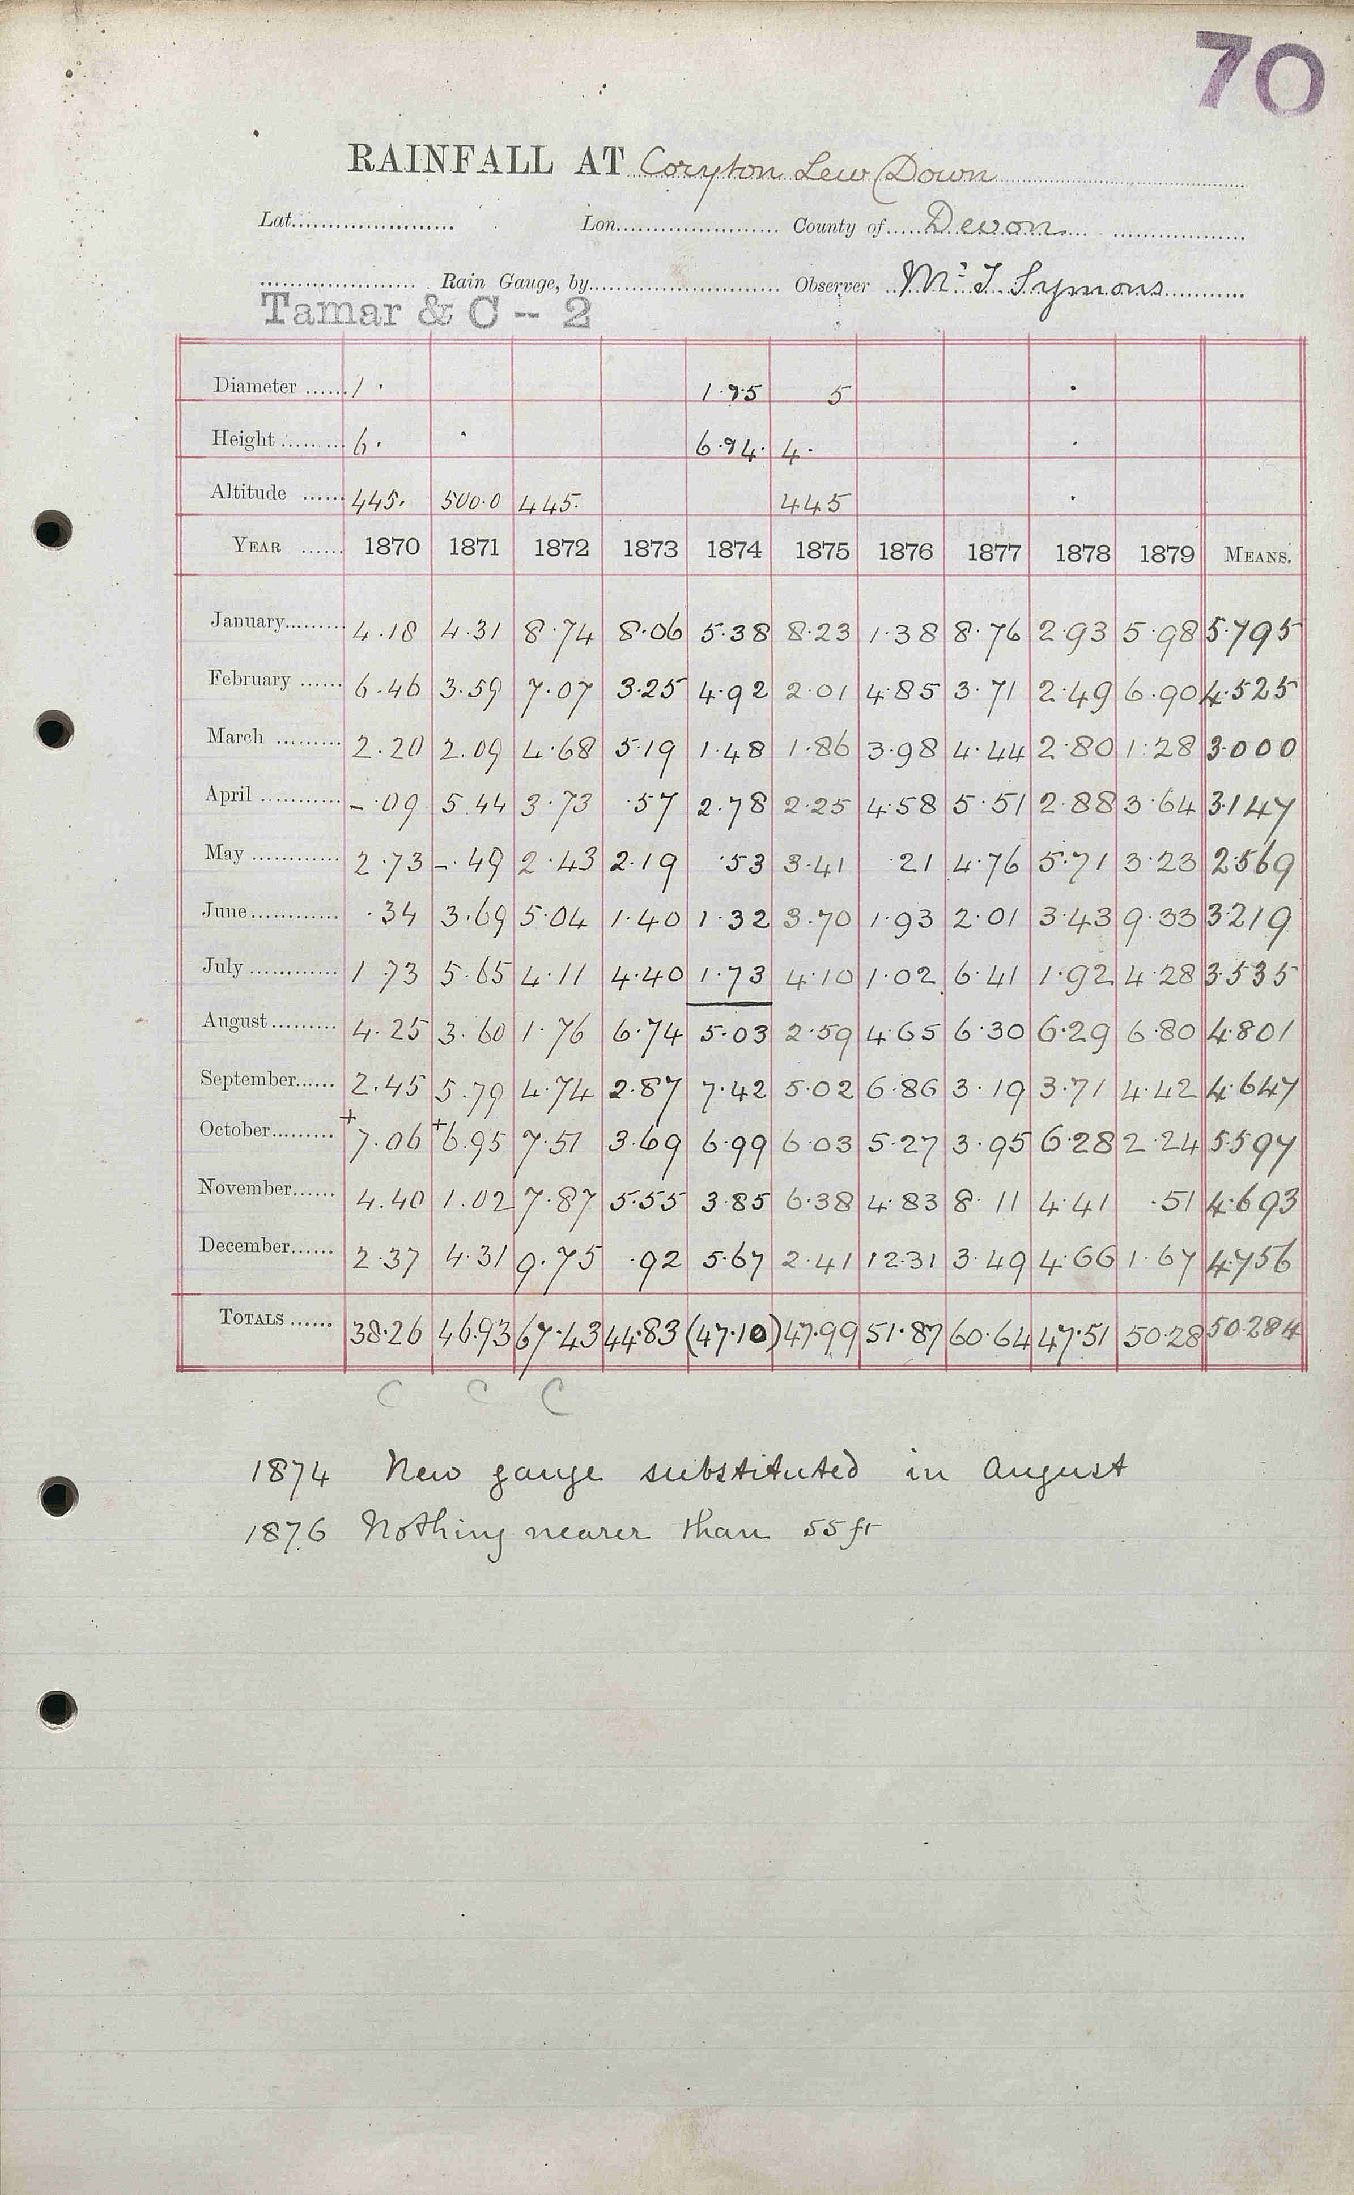 70
RAINFALL AT Coryton Lew Down
Lat. Lon. County of Devon
Rain Gauge, by Observer Mr J Symons
Tamar & C -- 2
Diameter 1· 5
Height 6· 4·
Altitude 445. 500·0 445. 445
YEAR 1870 1871 1872 1873 1874 1875 1876 1877 1878 1879 MEANS.
January 4·18 4·31 8·74 8·06 5·38 8·23 1·38 8·76 2·93 5·98 5·795
February 6·46 3·59 7·07 3·25 4·92 2·01 4·85 3·71 2·49 6·90 4·525
March 2·20 2·09 4·68 5·19 1·48 1·86 3·98 4·44 2·80 1·28 3·000
April -·09 5·44 3·73 ·57 2·78 2·25 4·58 5·51 2·88 3·64 3·147
May 2·73 -·49 2·43 2·19 ·53 3·41 ·21 4·76 5·71 3·23 2·569
June ·34 3·69 5·04 1·40 1·32 3·70 1·93 2·01 3·43 9·33 3·219
July 1·73 5·65 4·11 4·40 1·73 4·10 1·02 6·41 1·92 4·28 3·535
August 4·25 3·60 1·76 6·74 5·03 2·59 4·65 6·30 6·29 6·80 4·801
September 2·45 5·79 4·74 2·87 7·42 5·02 6·86 3·19 3·71 4·42 4·647
October +7·06 +6·95 7·51 3·69 6·99 6·03 5·27 3·95 6·28 2·24 5·597
November 4·40 1·02 7·87 5·55 3·85 6·38 4·83 8·11 4·41 ·51 4·693
December 2·37 4·31 9·75 ·92 5·67 2·41 12·31 3·49 4·66 1·67 4·756
TOTALS 38·26 46·93 67·43 44·83 (47·10) 47·99 51·87 60·64 47·51 50·28 50·284
C C C
1874 New gauge substituted in August
1876 Nothing nearer than 55 ft